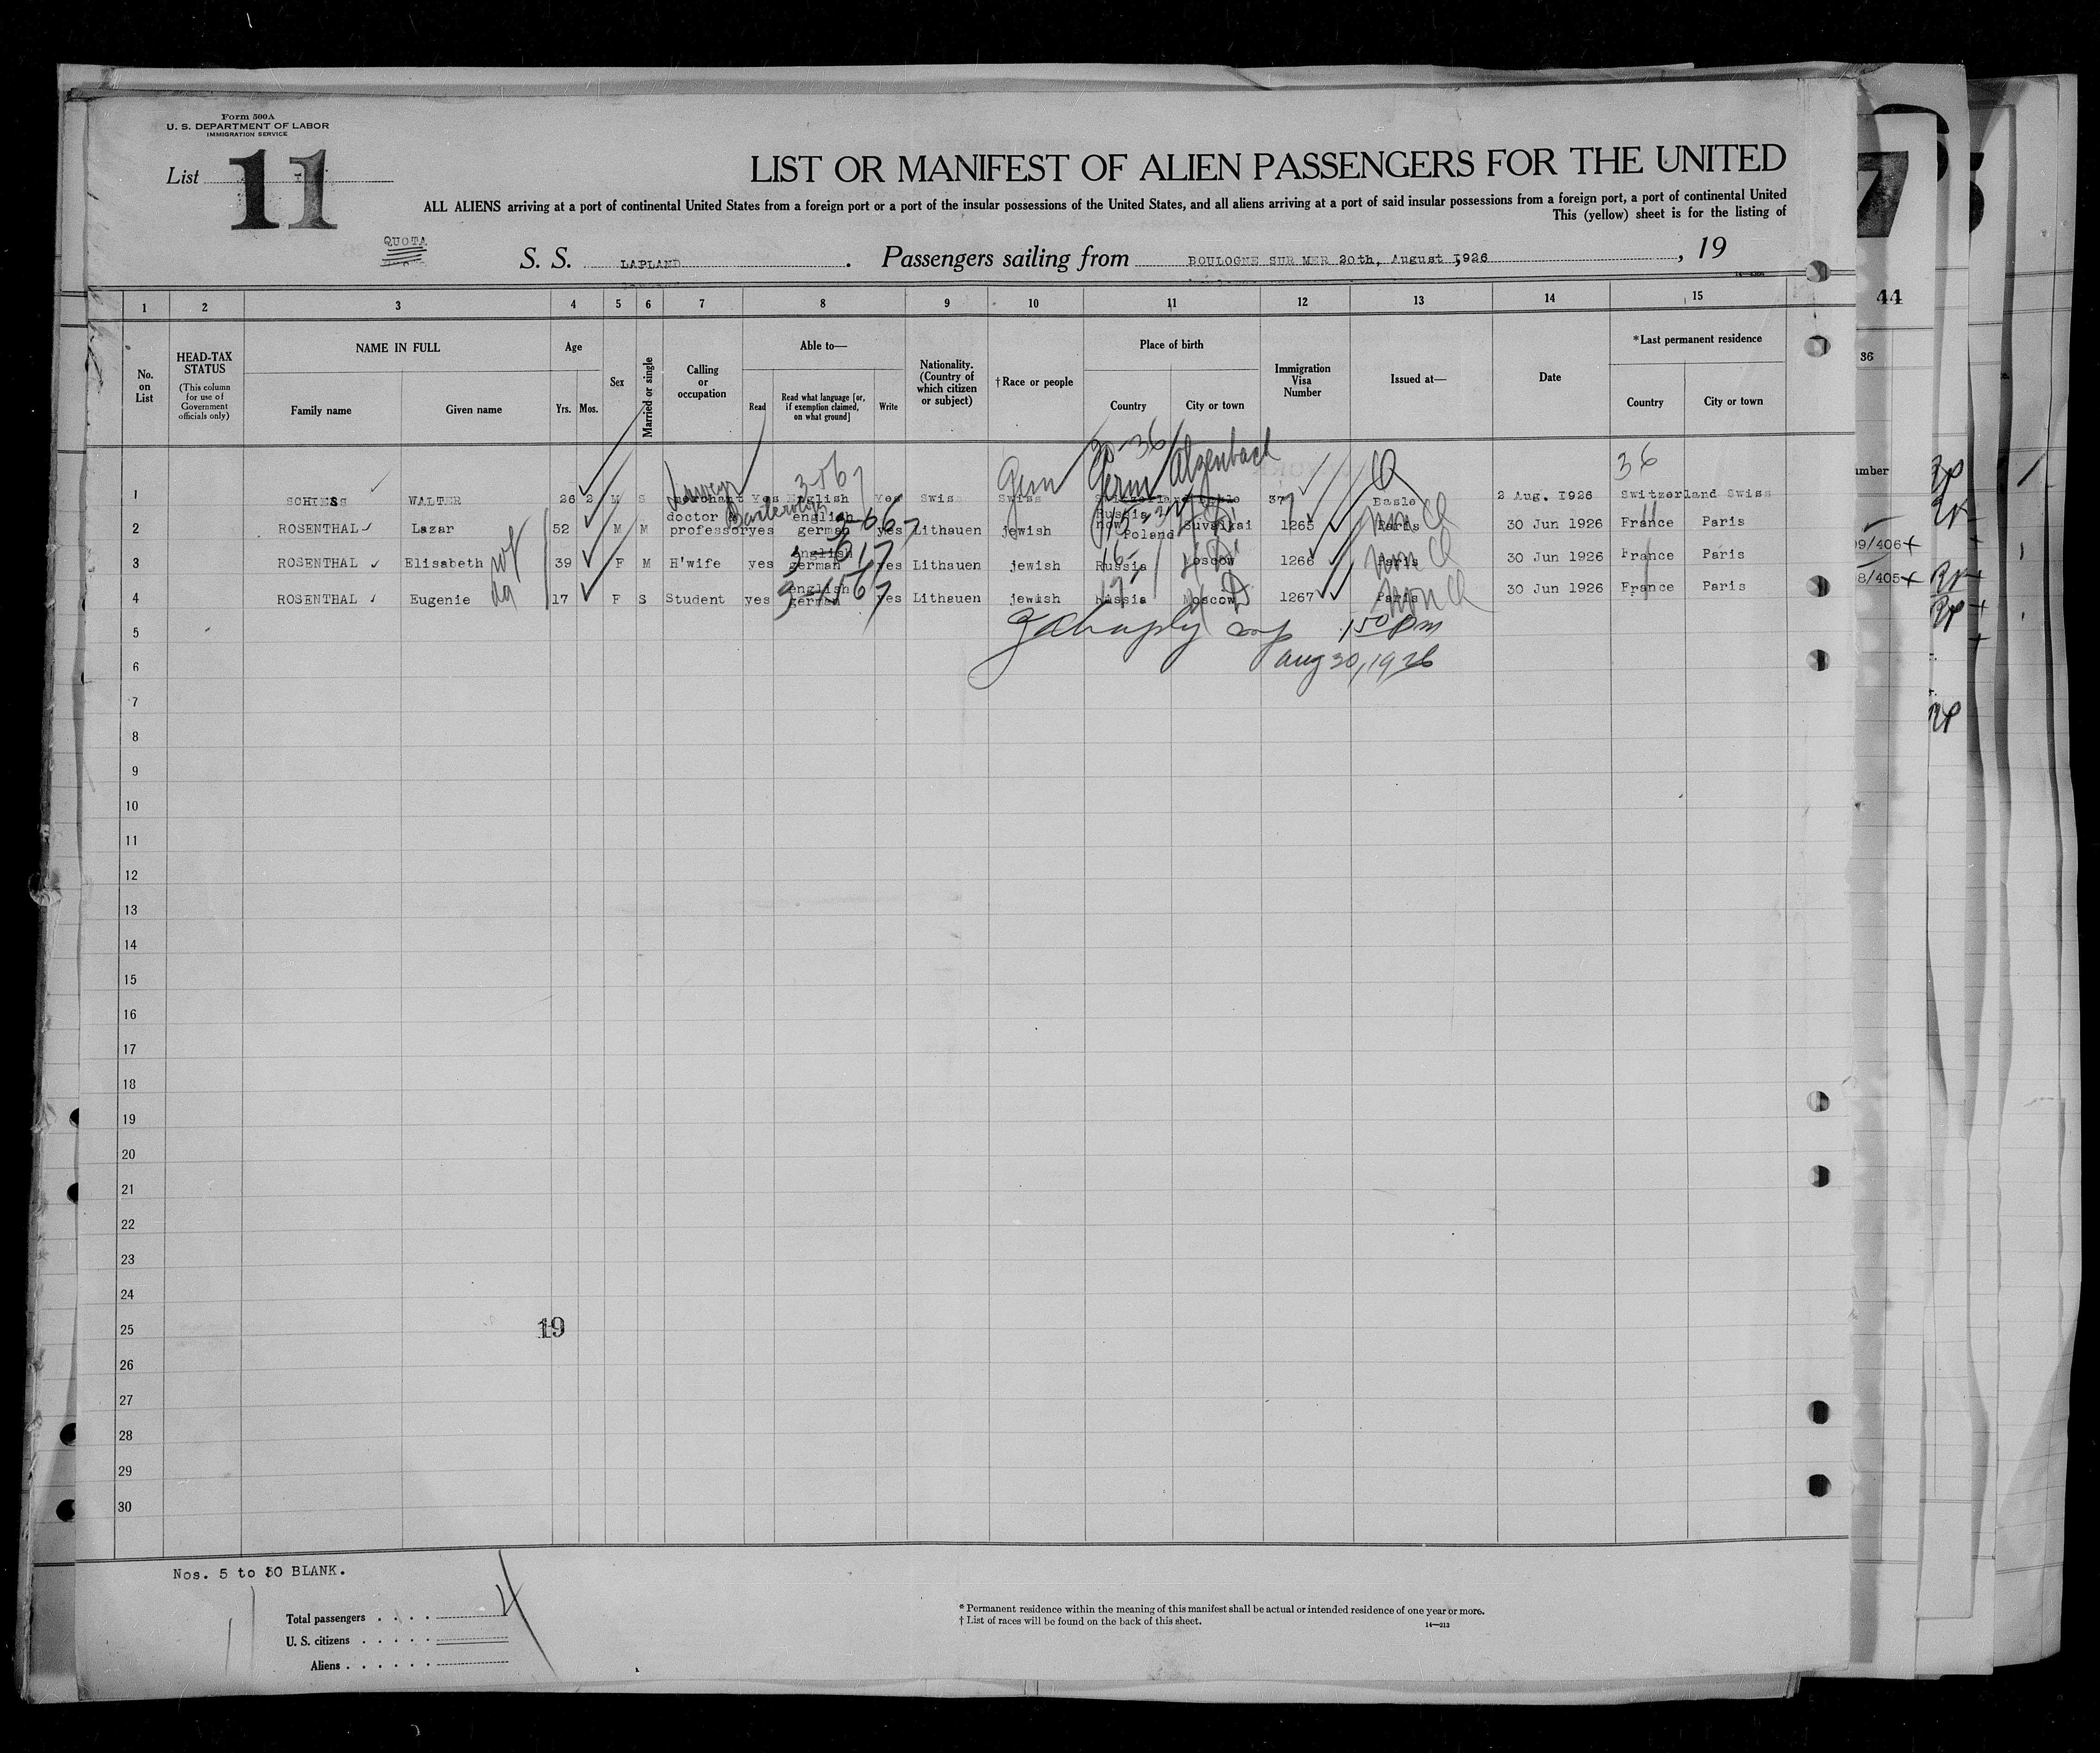 Form 500A
U. S. DEPARTMENT OF LABOR
IMMIGRATION SERVICE
List 11
LIST OR MANIFEST OF ALIEN PASSENGERS FOR THE UNITED
ALL ALIENS arriving at a port of continental United States from a foreign port or a port of the insular possessions of the United States, and all aliens arriving at a port of said insular possessions from a foreign port, a port of continental United
This (yellow) sheet is for the listing of
QUOTA
S. S. LAPLAND. Passengers sailing from BOULOGNE SUR MER 20th, August 1926, 19
1 2 3 4 5 6 7 8 9 10 11 12 13 14 15
No. on List
HEAD-TAX STATUS
(This column for use of Government officials only)
NAME IN FULL
Family name Given name
Age
Yrs. Mos.
Sex
Married or single
Calling or occupation
Able to—
Read
Read what language [or, if exemption claimed, on what ground]
Write
Nationality. (Country of which citizen or subject)
†Race or people
Place of birth
Country City or town
Immigration Visa Number
Issued at—
Date
*Last permanent residence
Country City or town
44
36
umber
30-36
3-567
36
Germ Germ Alzenbach Q
1 SCHIESS WALTER 26 2 M S merchant Yes English Yes Swis Swiss Switzerland Basle 37 Basle 2 Aug. 1926 Switzerland Swiss
2 ROSENTHAL Lazar 52 M M doctor professor yes english german yes Lithauen jewish Russia now Poland Suvalkai 1265 Paris 30 Jun 1926 France Paris
3 ROSENTHAL Elisabeth wf 39 F M H'wife yes english german yes Lithauen jewish Russia Moscow 1266 Paris 30 Jun 1926 France Paris
4 ROSENTHAL Eugenie da 17 F S Student yes english german yes Lithauen jewish Russia Moscow 1267 Paris 30 Jun 1926 France Paris
non Q
non Q
non Q
9/406+
8/405+
5
150 pm
6
Aug 30, 1926
7
8
9
10
11
12
13
14
15
16
17
18
19
20
21
22
23
24
25
19
26
27
28
29
30
Nos. 5 to 30 BLANK.
Total passengers . . . . 4
U. S. citizens . . . . .
Aliens . . . . . .
* Permanent residence within the meaning of this manifest shall be actual or intended residence of one year or more.
† List of races will be found on the back of this sheet.
14—213